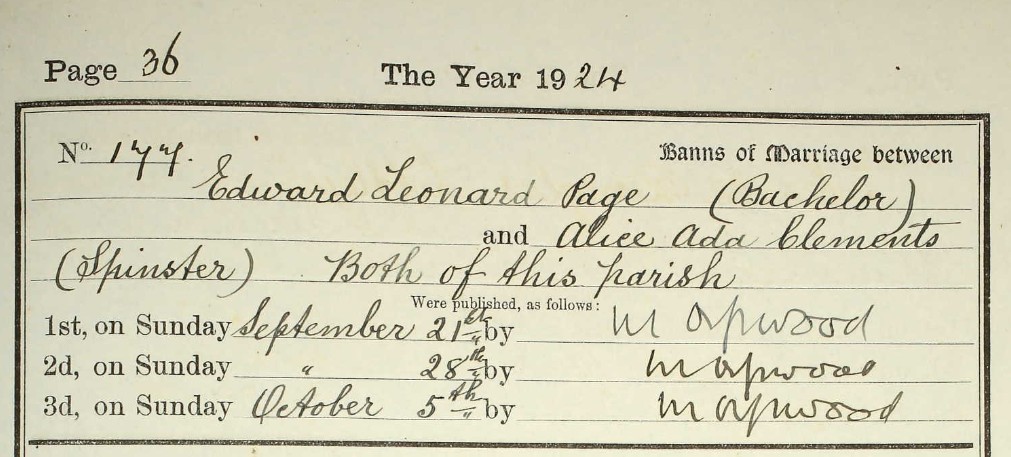 Page 36 The Year 1924
No. 177. Banns of Marriage between
Edward Leonard Page (Bachelor)
and Alice Ada Clements
(Spinster) Both of this parish
Were published, as follows:
1st, on Sunday September 21st by
2d, on Sunday " 28th by
3d, on Sunday October 5th by